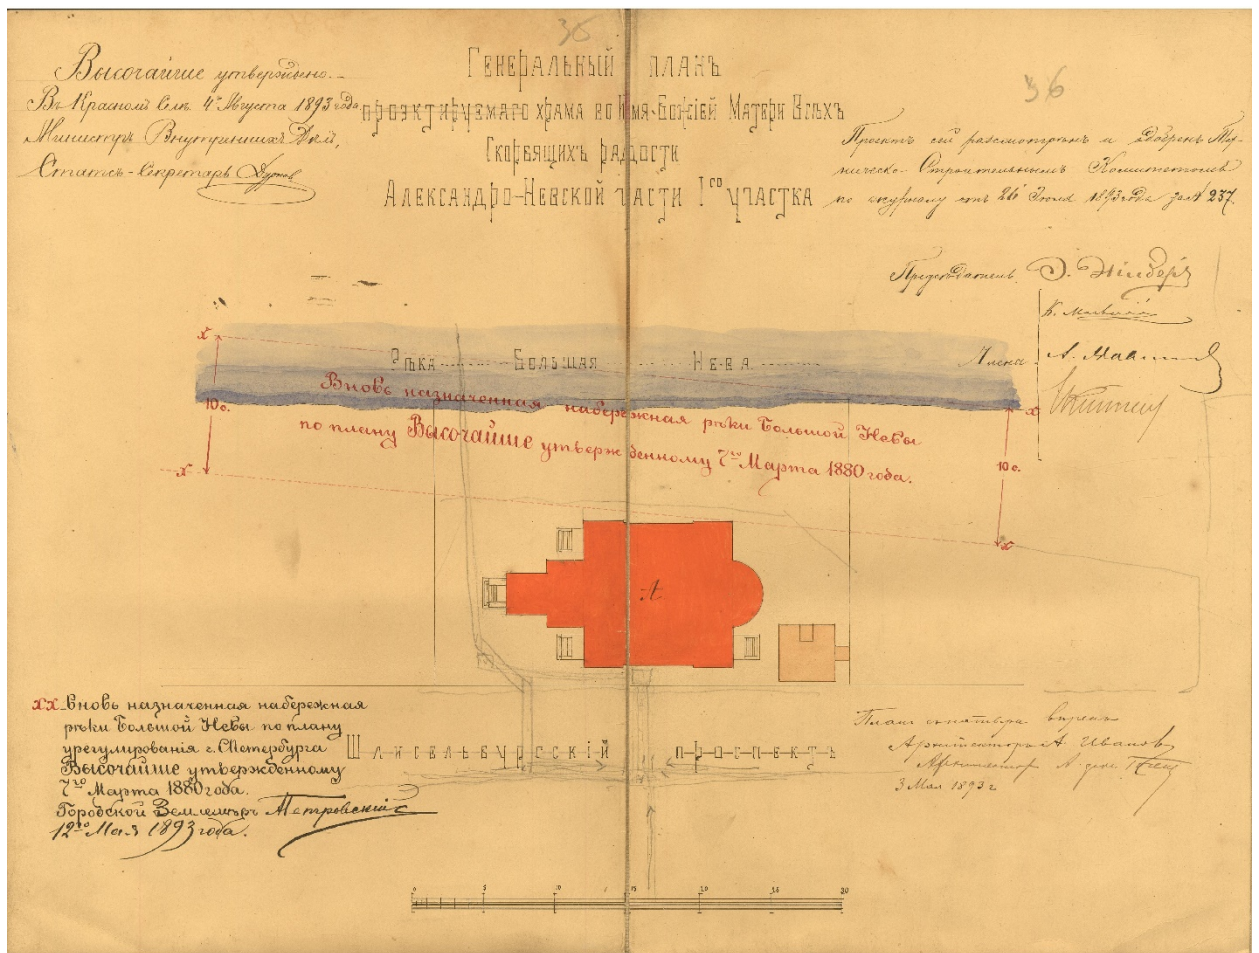 36
36
Высочайше утверждено.
Въ Красномъ Селѣ 4го Августа 1893 года.
Министръ Внутреннихъ Дѣлъ,
Статсъ-Секретарь Дурново
Генеральный планъ
проэктируемаго храма во Имя Божіей Матери Всѣхъ
Скорбящихъ радости
Александро-Невской части Iго участка
Проектъ сей разсмотрѣнъ и одобренъ Тех-
ническо-Строительнымъ Комитетомъ
по журналу отъ 26 Іюля 1893 года за № 237.
Предсѣдатель
Члены
Рѣка Большая Нева
х
10 с.
х
Вновь назначенная набережная рѣки Большой Невы
по плану Высочайше утвержденному 7го Марта 1880 года.
х
10 с.
х
А
хх Вновь назначенная набережная
рѣки Большой Невы по плану
урегулированія г. СПетербурга
Высочайше утвержденному
7го Марта 1880 года.
Городской Землемѣръ Петровскій
12го Мая 1893 года.
Шлисельбургскій проспектъ
Архитекторъ А Ивановъ
Архитекторъ
3 Мая 1893 г
0 5 10 15 20 25 30